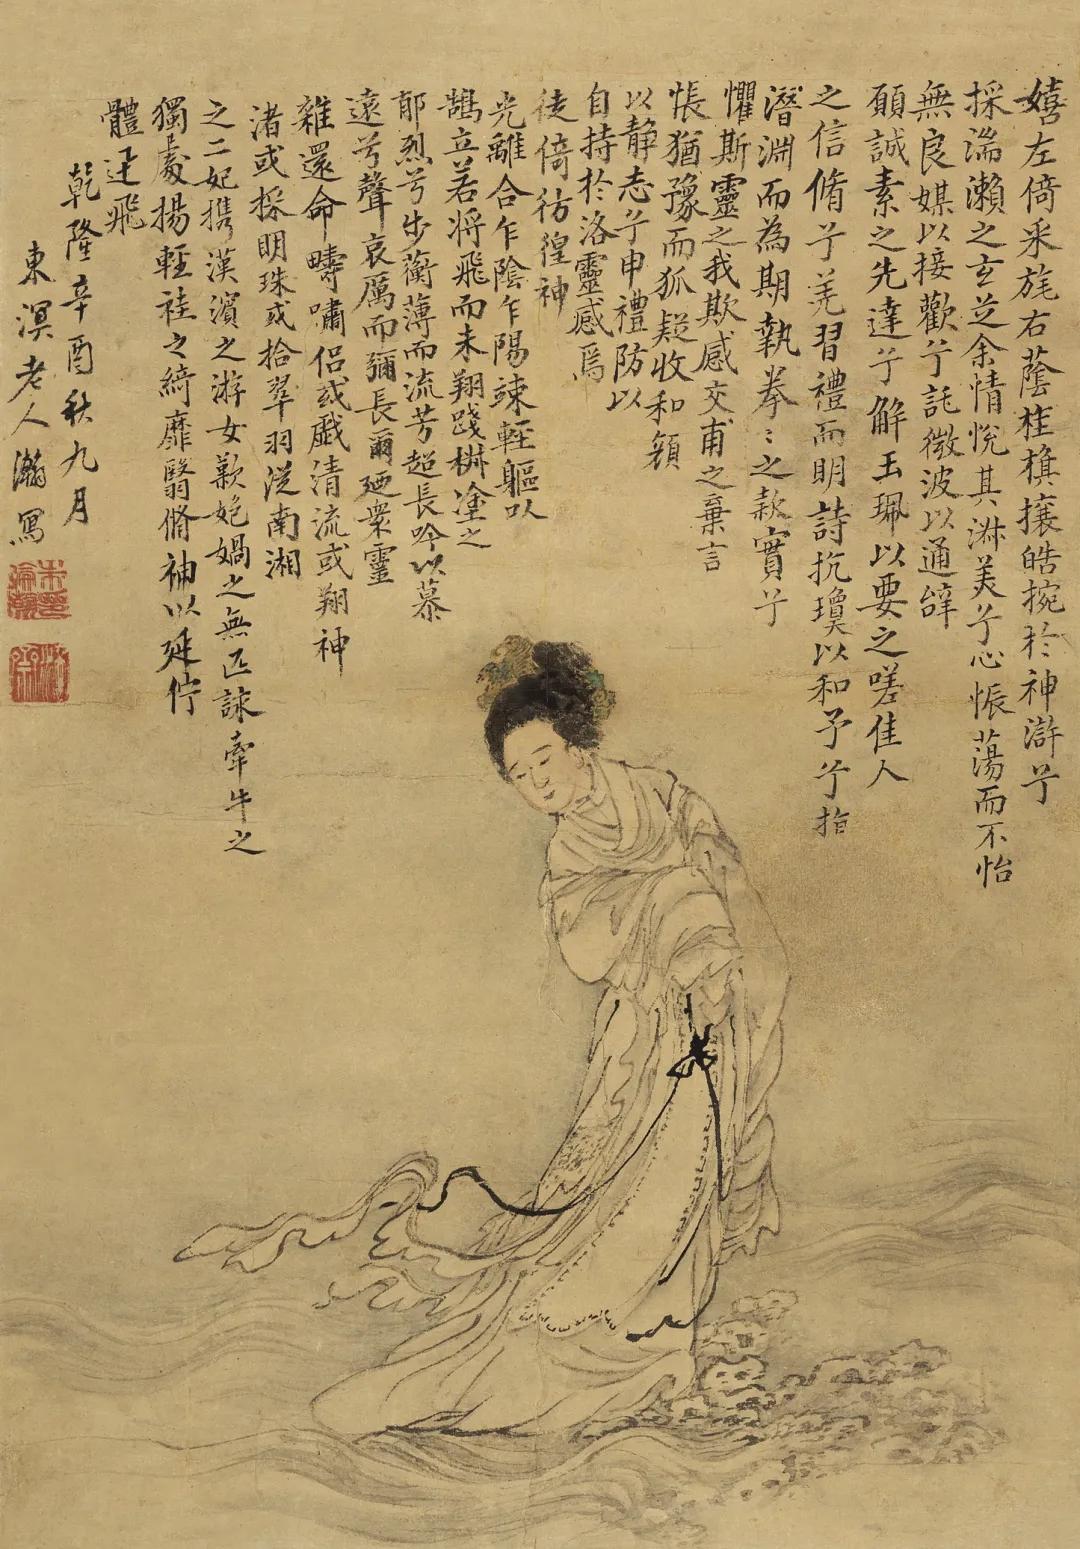 嬉左倚采旄右蔭桂旗攘皓捥於神滸兮
採湍瀨之玄芝余情悅其淋美兮心悵蕩而不怡
無良媒以接歡兮託微波以通辝
願誠素之先達兮解玉珮以要之嗟佳人
之信脩兮羌習禮而明詩抗瓊以和予兮指
潛淵而為期執拳〻之款實兮
懼斯靈之我欺感交甫之棄言
悵猶豫而狐疑收和顏
以静志兮申禮防以
自持於洛靈感焉
徒倚彷徨神
光離合乍陰乍陽竦輕軀以
鵠立若將飛而未翔踐椒塗之
郁烈兮步蘅薄而流芳超長吟以慕
遠兮聲哀厲而彌長爾廼衆靈
雜還命疇嘯侶或戲清流或翔神
渚或採明珠或拾翠羽從南湘
之二妃携漢濱之游女歎匏媧之無匹詠牽牛之
獨處揚輕袿之綺靡翳脩袖以延佇
體迅飛
乾隆辛酉秋九月
東溟老人瀚寫